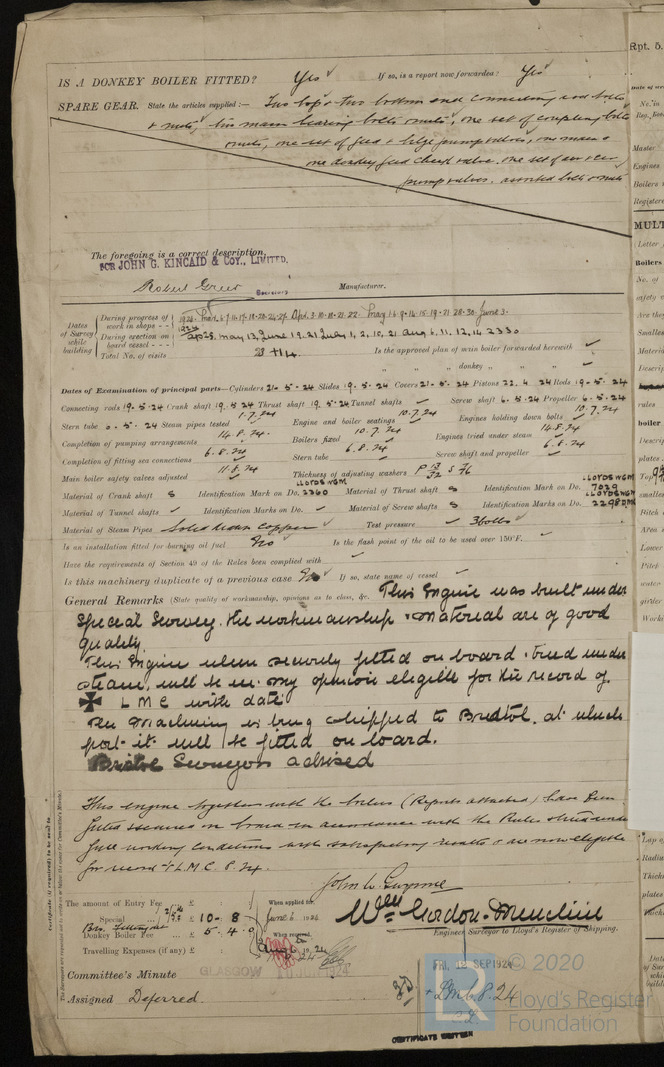 IS A DONKEY BOILER FITTED? Yes If so, is a report now forwarded? Yes
SPARE GEAR. State the articles supplied:— Two top & two bottom end connecting rod bolts
& nuts, two main bearing bolts & nuts, one set of coupling bolts
& nuts, one set of feed & bilge pump valves, one main &
one donkey feed check valve. one set of air & cir
pump valves. assorted bolts & nuts
The foregoing is a correct description,
FOR JOHN G. KINCAID & COY., LIMITED.
Robert Greer Manufacturer.
Dates of Survey while building
During progress of work in shops - - 1924. Mar. 6. 7. 11. 17. 18. 20. 24. 27. Apl. 3. 10. 18. 21. 22. May 1. 6. 9. 14. 15. 19. 21. 28. 30. June 3.
During erection on board vessel - - - 1924 Ap 25, May 13, June 19. 21 July 1, 2, 10, 21 Aug 6, 11, 12, 14
Total No. of visits 23 + 14 Is the approved plan of main boiler forwarded herewith
" " " donkey " " "
Dates of Examination of principal parts—Cylinders 21. 5. 24 Slides 19. 5. 24 Covers 21. 5. 24 Pistons 22. 4. 24 Rods 19. 5. 24
Connecting rods 19. 5. 24 Crank shaft 19. 5. 24 Thrust shaft 19. 5. 24 Tunnel shafts Screw shaft 6. 5. 24 Propeller 6. 5. 24
Stern tube 5. 24 Steam pipes tested 1.7.24 Engine and boiler seatings 10.7.24 Engines holding down bolts 10.7.24
Completion of pumping arrangements 14.8.24. Boilers fixed 10.7.24 Engines tried under steam 14.8.24
Completion of fitting sea connections 6.8.24 Stern tube 6.8.24 Screw shaft and propeller 6.8.24
Main boiler safety valves adjusted 11.8.24 Thickness of adjusting washers
Material of Crank shaft S Identification Mark on Do. LLOYDS WGM 2260 Material of Thrust shaft S Identification Mark on Do. LLOYDS WGM 7029
Material of Tunnel shafts Identification Marks on Do. Material of Screw shafts S Identification Marks on Do. LLOYDS WGM 2298
Material of Steam Pipes Solid drawn copper Test pressure 360 lbs
Is an installation fitted for burning oil fuel No Is the flash point of the oil to be used over 150°F.
Have the requirements of Section 49 of the Rules been complied with
Is this machinery duplicate of a previous case No If so, state name of vessel
General Remarks (State quality of workmanship, opinions as to class, &c. This Engine was built under
Special Survey. the workmanship & material are of good
quality.
This Engine when securely fitted on board & tried under
steam, will be in my opinion eligible for the record of
✠ L M C with date
The Machinery is being shipped to Bristol, at which
port it will be fitted on board.
Bristol Surveyors advised
This engine together with the boilers (Reports attached) have been
fitted & secured on board in accordance with the Rules & tried under
full working conditions with satisfactory results & are now eligible
for record + L.M.C. 8. 24.
John W.
The amount of Entry Fee £ : : When applied for,
Special £ 10 - 8 June 6 1924
Donkey Boiler Fee £ 5 . 4 . 0 When received,
Travelling Expenses (if any) £ : :
Wm Gordon-Murchie
Engineer Surveyor to Lloyd's Register of Shipping.
Committee's Minute GLASGOW 10 JUN 1924 FRI. 12 SEP 1924
Assigned Deferred. + LMC 8.24
CERTIFICATE WRITTEN
Certificate (if required) to be sent to
The Surveyors are requested not to write on or below the space for Committee's Minute.
© 2020
Lloyd's Register
Foundation
Rpt. 5.
Master
Engines
Boilers
MULT